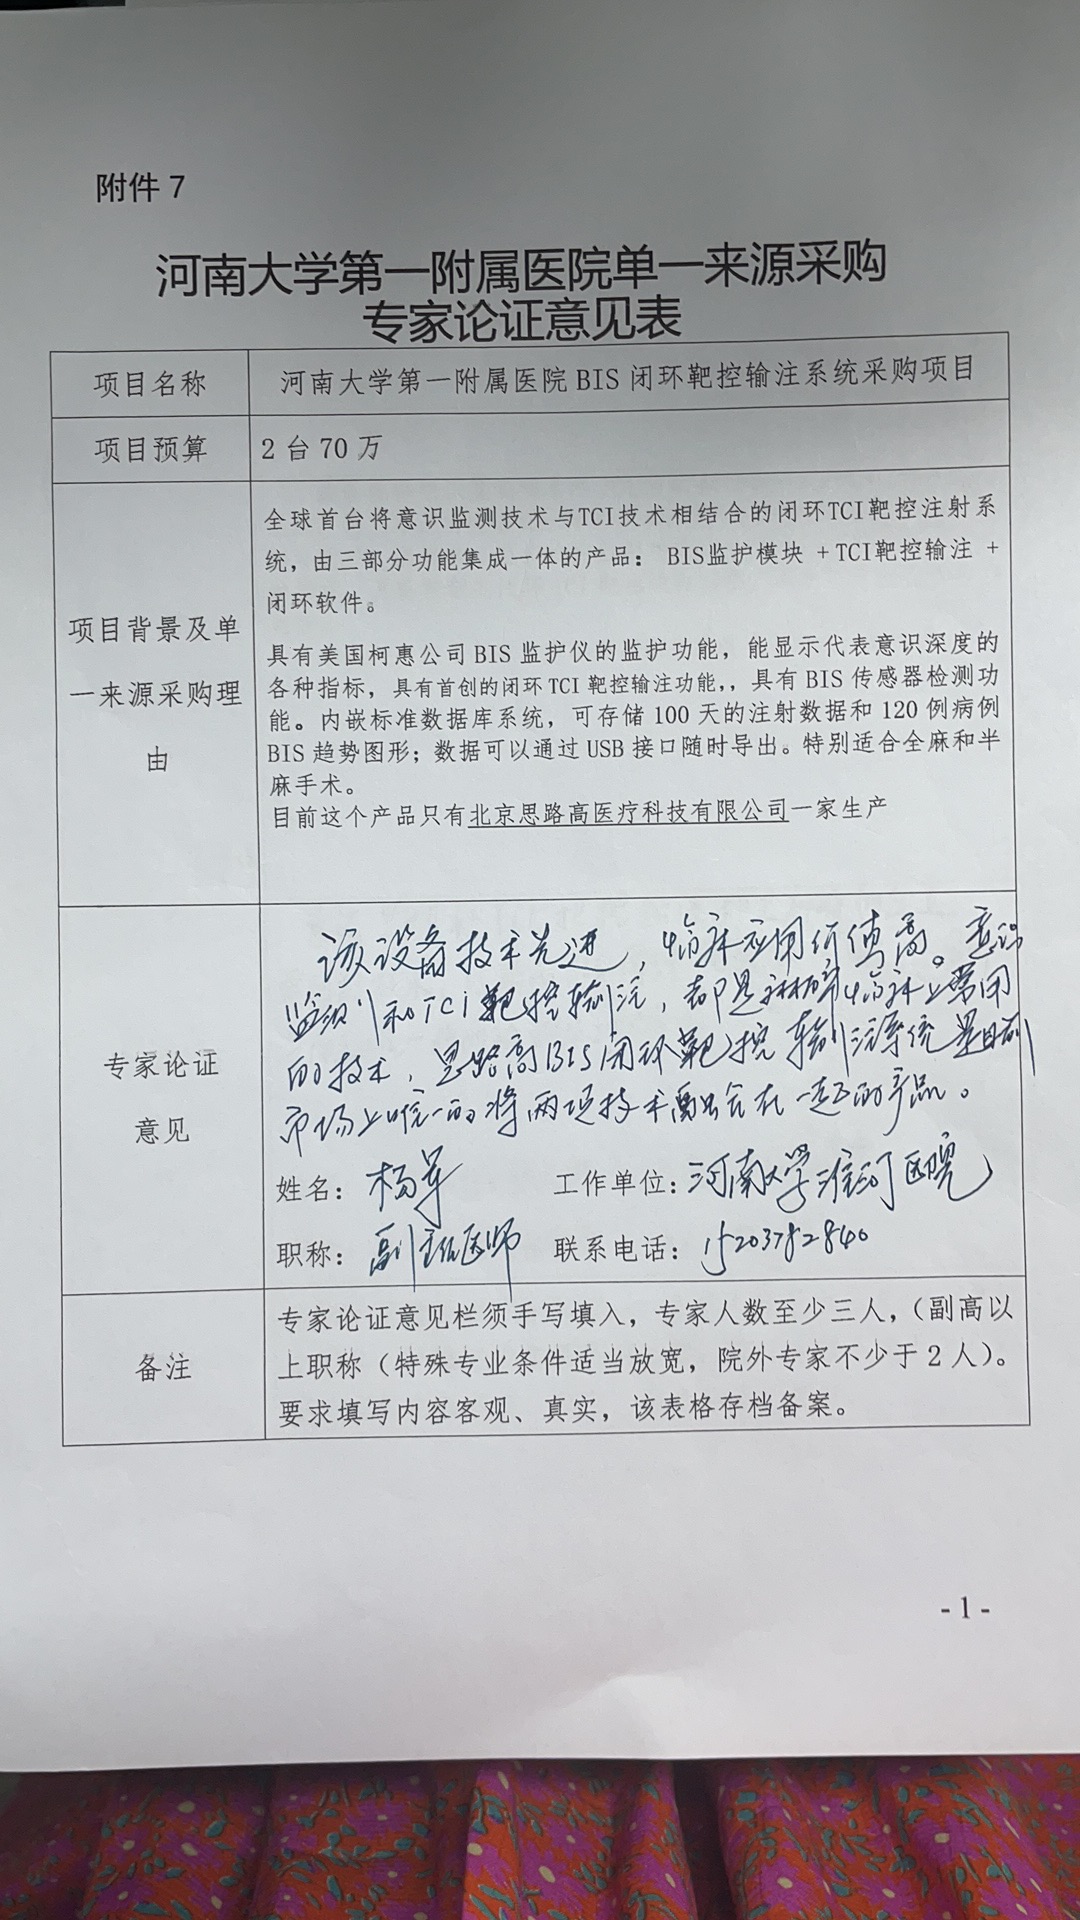 附件 7
河南大学第一附属医院单一来源采购
专家论证意见表
项目名称
河南大学第一附属医院 BIS 闭环靶控输注系统采购项目
项目预算
2 台 70 万
项目背景及单
一来源采购理
由
全球首台将意识监测技术与TCI技术相结合的闭环TCI靶控注射系
统，由三部分功能集成一体的产品： BIS监护模块 +TCI靶控输注 +
闭环软件。
具有美国柯惠公司 BIS 监护仪的监护功能，能显示代表意识深度的
各种指标，具有首创的闭环 TCI 靶控输注功能,，具有 BIS 传感器检测功
能。内嵌标准数据库系统，可存储 100 天的注射数据和 120 例病例
BIS 趋势图形；数据可以通过 USB 接口随时导出。特别适合全麻和半
麻手术。
目前这个产品只有北京思路高医疗科技有限公司一家生产
专家论证
意见
该设备技术先进，临床应用价值高。意识
监测和TCI靶控输注，都是麻醉临床上常用
的技术，思路高BIS闭环靶控输注系统是目前
市场上唯一的将两项技术融合在一起的产品。
姓名：杨军 工作单位：河南大学淮河医院
职称：副主任医师 联系电话：15203782840
备注
专家论证意见栏须手写填入，专家人数至少三人，（副高以
上职称（特殊专业条件适当放宽，院外专家不少于 2 人）。
要求填写内容客观、真实，该表格存档备案。
- 1 -